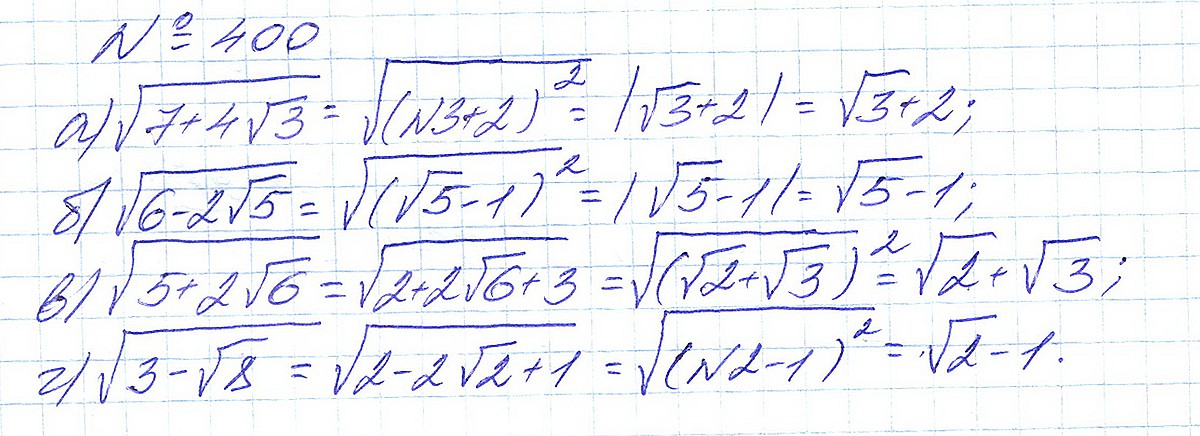 № 400
а) √(7+4√3) = √((√3+2)²) = |√3+2| = √3+2;
б) √(6-2√5) = √((√5-1)²) = |√5-1| = √5-1;
в) √(5+2√6) = √(2+2√6+3) = √((√2+√3)²) = √2+√3;
г) √(3-√8) = √(2-2√2+1) = √((√2-1)²) = √2-1.